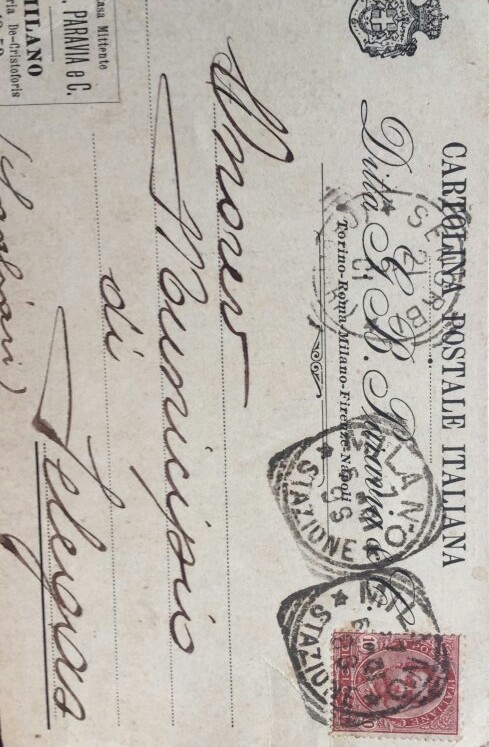 CARTOLINA POSTALE ITALIANA
Ditta G. B. Paravia e C.
Torino-Roma-Milano-Firenze-Napoli
MILANO
STAZIONE
MILANO
STAZIONE
Casa Mittente
PARAVIA e C.
MILANO
De-Cristoforis
Onorev
Municipio
di
Selegas
(Cagliari)